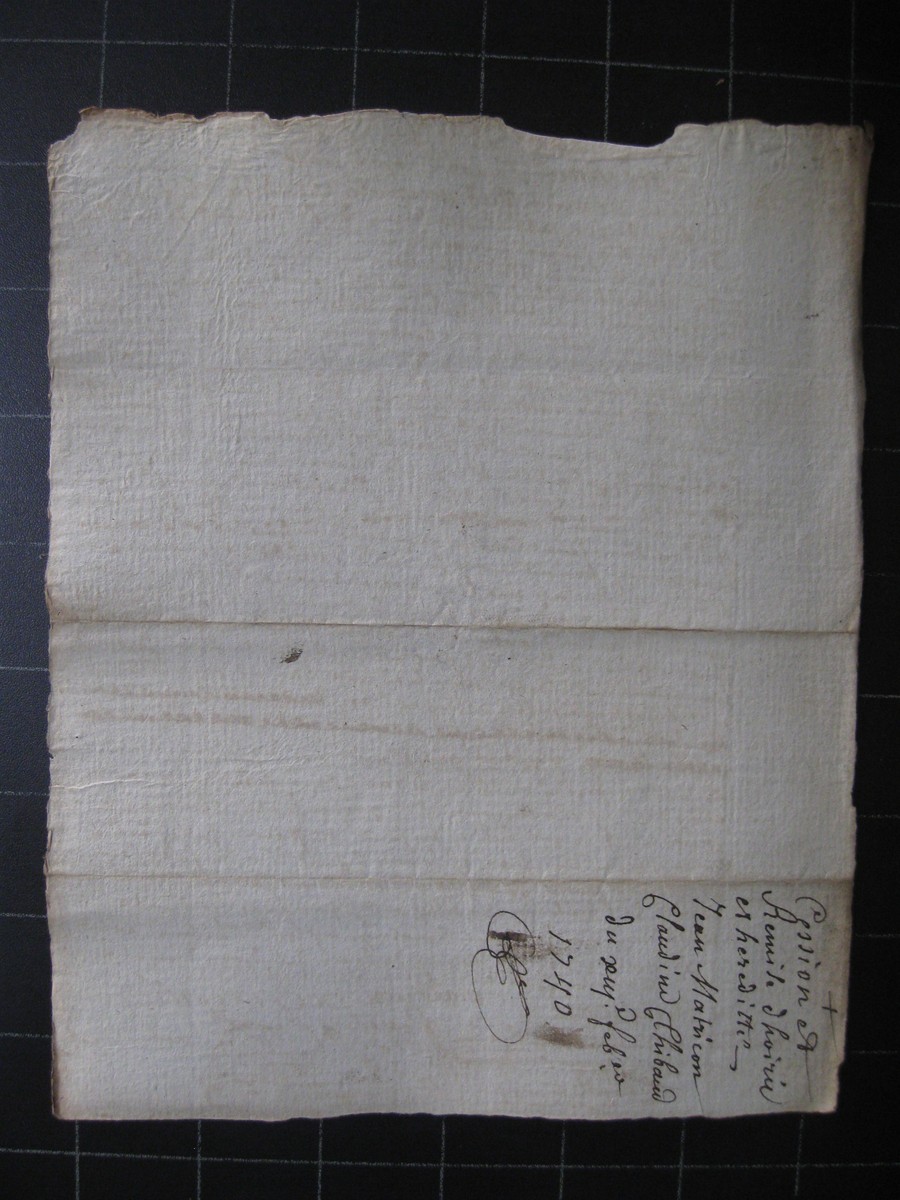 +
Cession et
Remise d'hoirie
et heredittes
Jean Matricon
Claudine Thibaud
du xvij.e febr.
1740